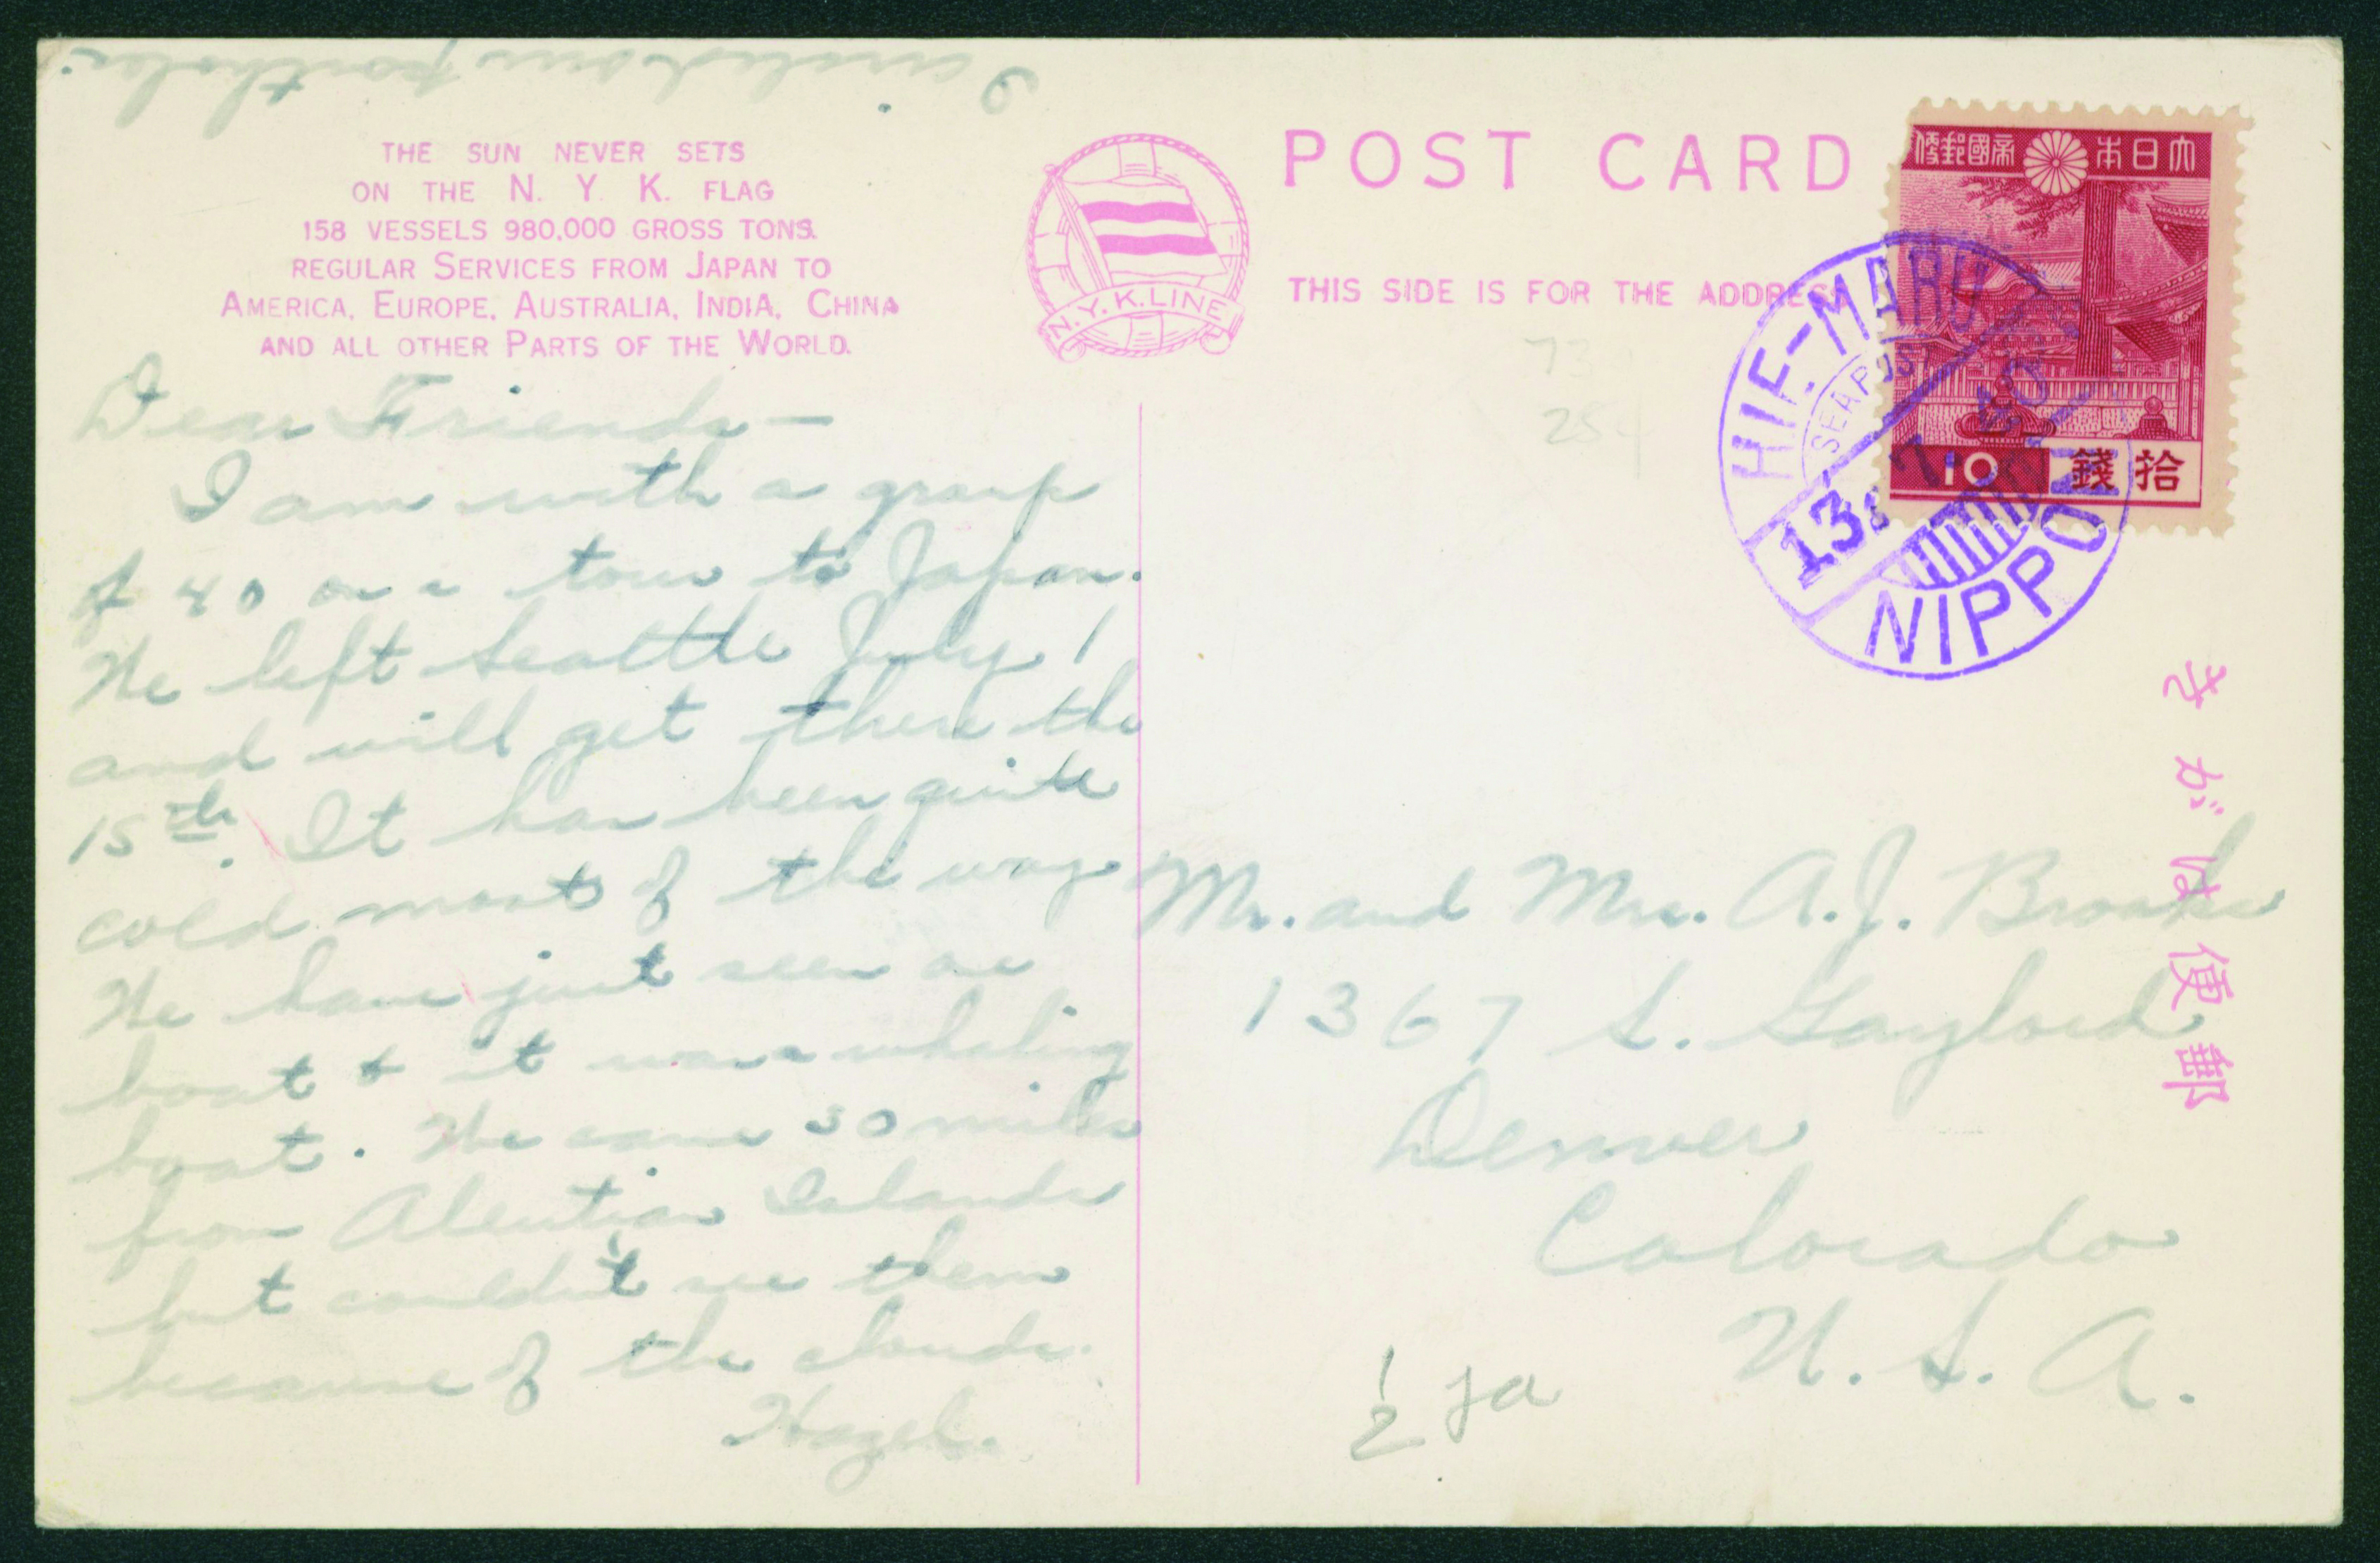 I circled our porthole.
THE SUN NEVER SETS
ON THE N. Y. K. FLAG
158 VESSELS 980,000 GROSS TONS.
REGULAR SERVICES FROM JAPAN TO
AMERICA, EUROPE, AUSTRALIA, INDIA, CHINA
AND ALL OTHER PARTS OF THE WORLD.
N.Y.K.LINE
Dear Friends—
I am with a group
of 40 on a tour to Japan.
We left Seattle July 1
and will get there the
15th. It has been quite
cold most of the way
We have just seen one
boat & it was a whaling
boat. We came 30 miles
from Aleutian Islands
but couldn't see them
because of the clouds.
Hazel.
POST CARD
THIS SIDE IS FOR THE ADDRESS
大日本帝國郵便
10 拾錢
HIE-MARU
SEAPOST
13.7.40
NIPPON
73
254
きがは便郵
Mr. and Mrs. A.J. Brooks
1367 S. Gaylord
Denver
Colorado
U.S.A.
1/2 Ja